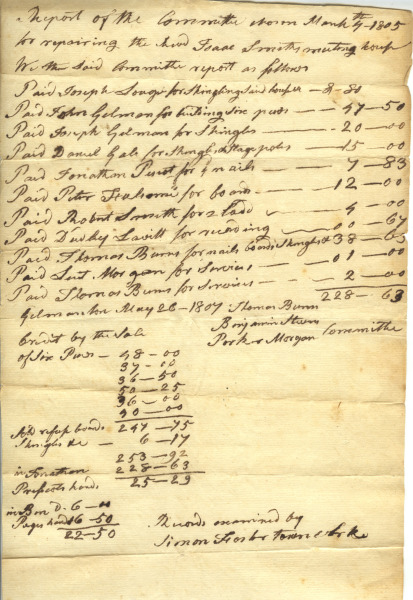 Report of the Committe chosen March 4th 1805
for repairing the Revd Isaac Smiths meeting house
We the Said Committe report as follows
Paid Joseph for Shingling Said house — 80
Paid John Gilman for building Six pews — 47—50
Paid Joseph Gilman for Shingles — 20—00
Paid Daniel Gale for Shingles & Stage poles — 15—00
Paid Jonathan for nails — 7—83
Paid Peter for boards — 12—00
Paid Robert Smith for Lead — 4—00
Paid Dudley for — 00—67
Paid Thomas Burns for nails boards Shingles & 38—63
Paid Lut. Morgan for Services — 01—00
Paid Thomas Burns for Services — 2—00
228—63
Gilmanton May 26—1807 Thomas Burns
Benjamin Stevens
Parker Morgan Committe
Credit by the Sale
of Six Pews — 48—00
37—00
36—50
50—25
36—00
40—00
247—75
Add refuse boards
Shingles &c — 6—17
253—92
in Jonathan 228—63
Prescots hands 25—29
in Ben D. 6—00
Pages hands 16—50
22—50
Records examined by
Simon town clerk